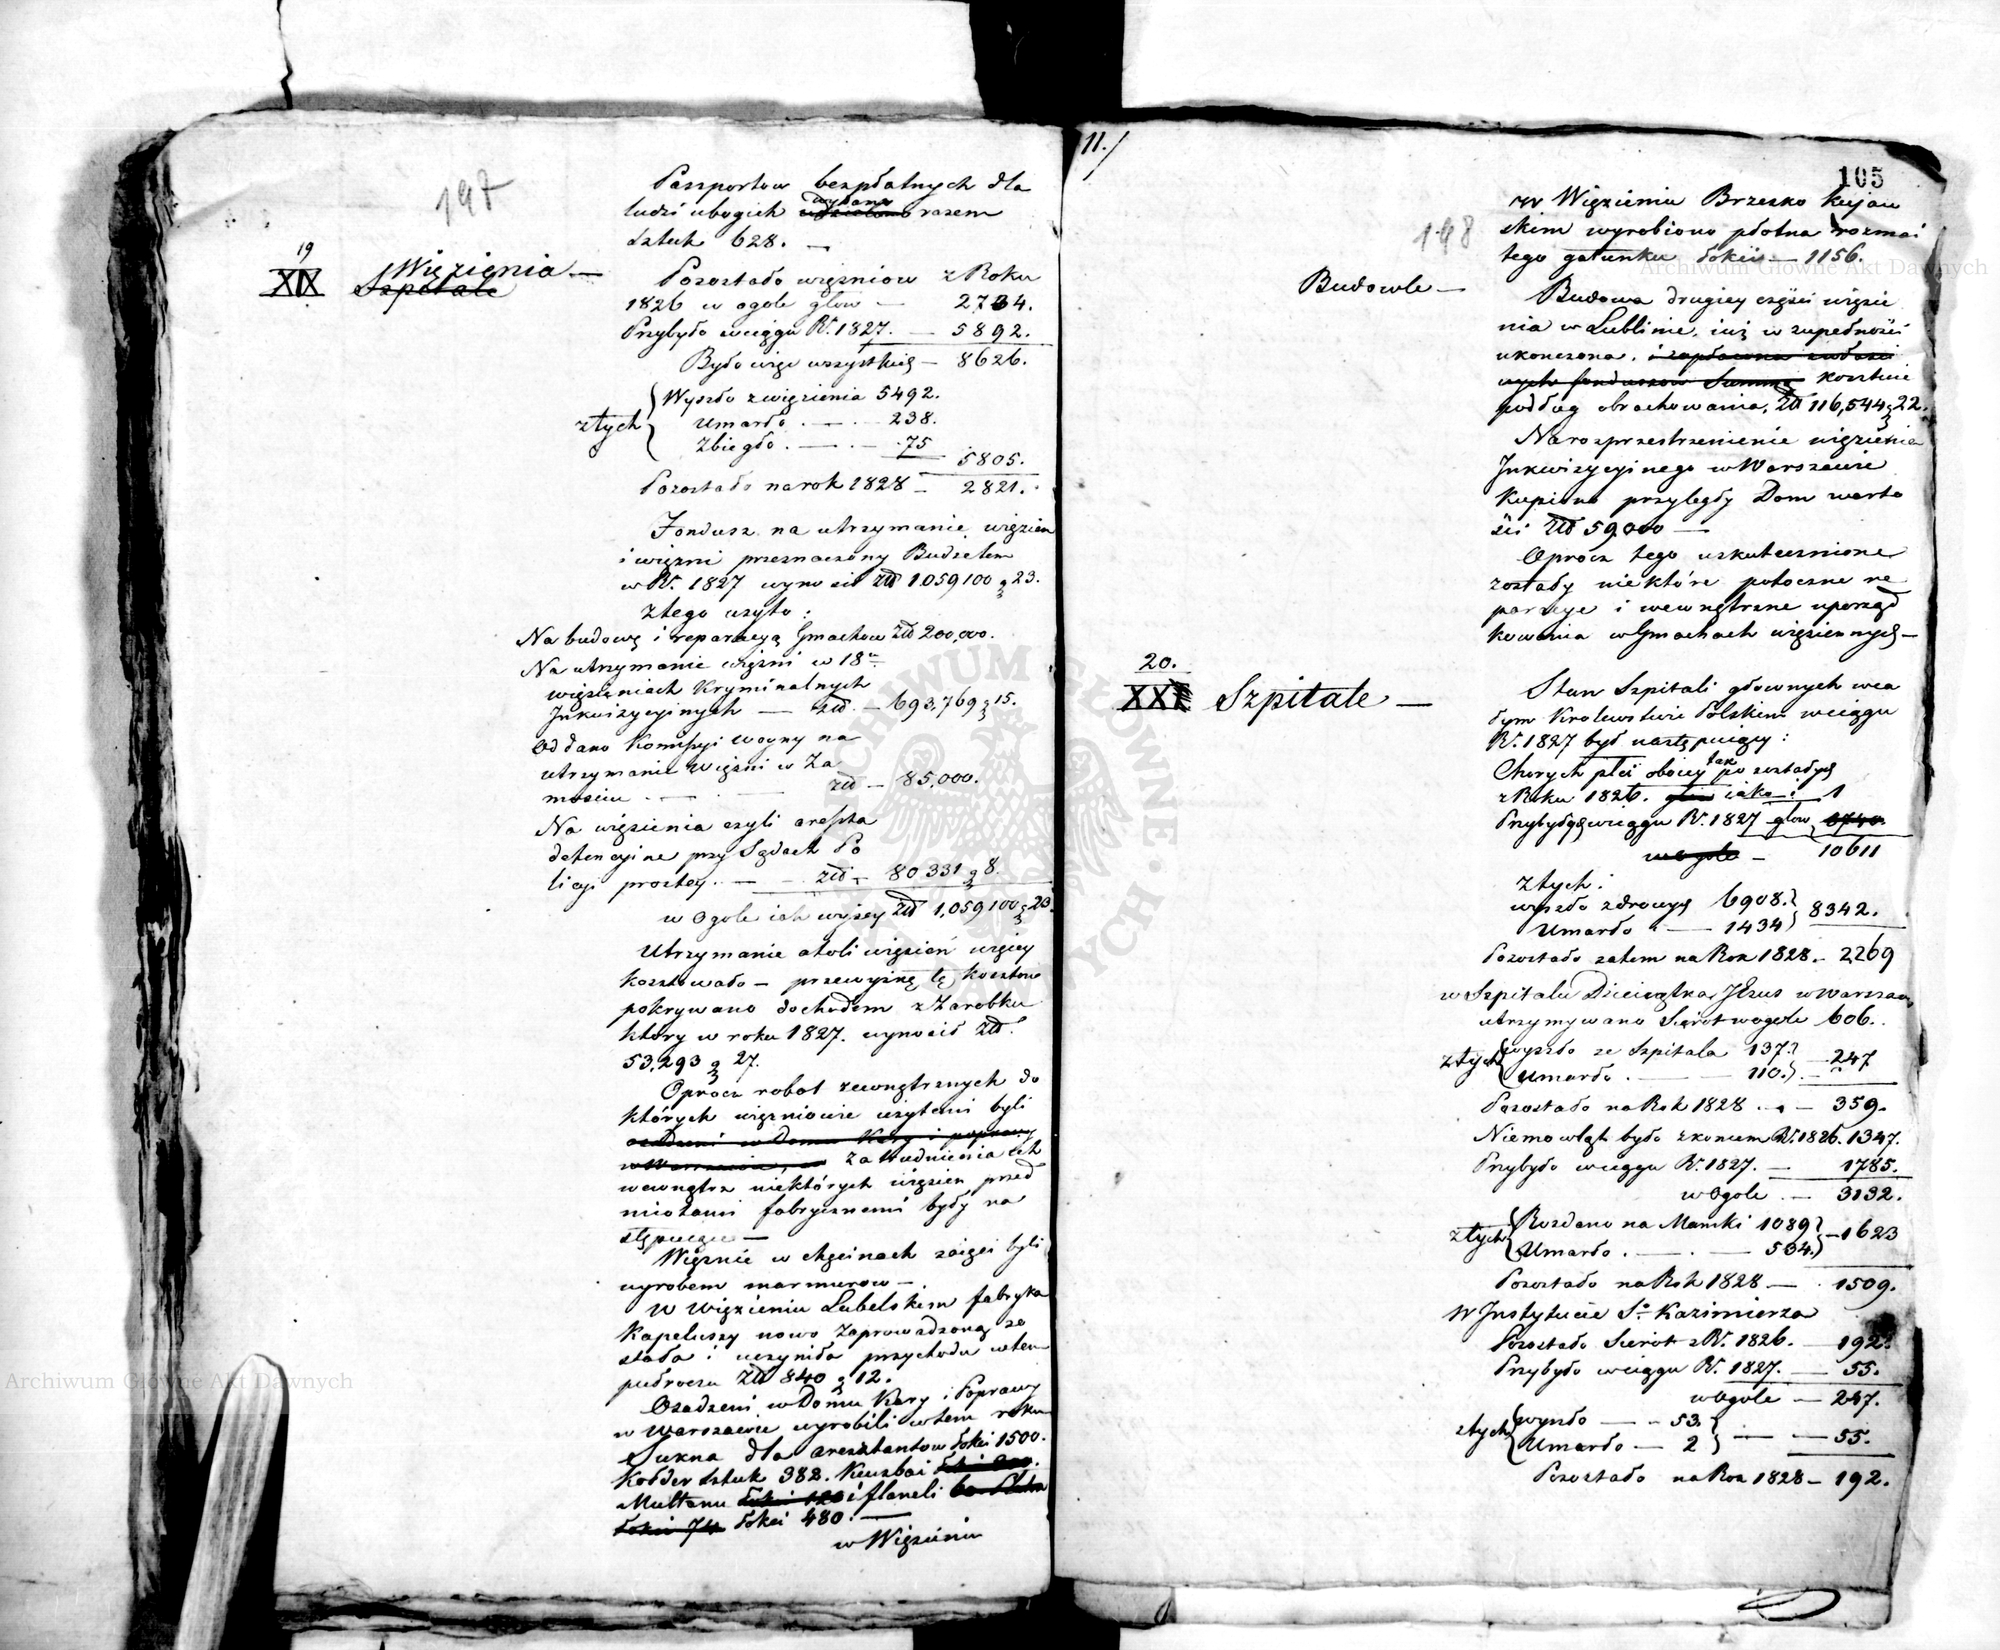 197
Passportow bezpłatnych dla
ludzi ubogich wydano razem
sztuk 628. —
19
XIX Więzienia —
Szpitale
Pozostało więzniow z Roku
1826 w ogole głow — 2734.
Przybyło wciągu R. 1827. — 5892.
Było więc wszystkich — 8626.
ztych
Wyszło z więzienia 5492.
Umarło . — . — 238.
Zbiegło . — . — 75
5805.
Pozostało na rok 1828 — 2821.
Fondusz na utrzymanie więzien
i więzni przeznaczony Budżetem
w R. 1827 wynosił Złł 1,059100 g 23.
Ztego użyto :
Na budowę i reparacyą Gmachow Złł 200,000.
Na utrzymanie więzni w 18u
więzieniach Kryminalnych
Inkwizycyinych — Złł. — 693,769 g 15.
Oddano Komissyi Woyny na
utrzymanie więzni w Za
mosciu . — . — Złł — 85,000.
Na więzienia czyli areszta
detencyine przy Sądach Po
licyi prostey . — . Złł — 80 331 g 8.
w Ogole iak wyżey Złł 1,059100 g 23.
Utrzymanie atoli więzień więcey
kosztowało — przewyżkę tę kosztow
pokrywano dochodem z Zarobku
ktory w roku 1827. wynosił Złł.
53,293 g 27.
Oprócz robot zewnątrznych do
których więzniowie użytemi byli
osadzeni w Domu Kary i poprawy
w Warszawie, zatrudnienia ich
wewnątrz niektórych więzien przed
miotami fabrycznemi były na
stępuiące —
Więznie w Chęcinach zaięci byli
wyrobem marmurow —
W Więzieniu Lubelskiem fabryka
Kapeluszy nowo zaprowadzoną zo
stała i uczyniła przychodu w tem
pułroczu Złł 840 g 12.
Osadzeni w Domu Kary i Poprawy
w Warszawie wyrobili w tem roku
Sukna dla aresztantow łokci 1500.
Kołder sztuk 382. Kuczbai
Multanu i flaneli
łokci 74 łokci 480. —
w Więzieniu
11./
105
198
w Więzieniu Brzesko Kujaw
skim wyrobiono płotna rozmai
tego gatunku łokci — 1156.
Budowle —
Budowa drugiey części więzie
nia w Lublinie, iuż w zupełności
ukonczona,
kosztuie
podług obrachowania, Złł 116,544 g 22.
Na rozprzestrzenienie więzienia
Inkwizycyinego w Warszawie
kupiono przyległy Dom warto
ści Złł 59,000 —
Oprócz tego uskutecznione
zostały niektóre potoczne re
paracye i wewnętrzne uporząd
kowania w Gmachach więziennych —
20.
XXI Szpitale —
Stan Szpitali głownych w ca
łym Krolewstwie Polskiem wciągu
R. 1827 był następuiący :
Chorych płci oboiey tak pozostałych
z Roku 1826. iako i
Przybyłych wciągu R. 1827 głow
w ogole — 10611
Ztych :
wyszło zdrowych 6908.
Umarło . — 1434
8342.
Pozostało zatem na Rok 1828. — 2269
w Szpitalu Dzieciątka Jezus w Warszawie
utrzymywano Sierot w ogole 606.
ztych
wyszło ze Szpitala 137.
Umarło . — 110.
— 247
Pozostało na Rok 1828 . — 359.
Niemowląt było z koncem R. 1826. 1347.
Przybyło wciągu R. 1827. — 1785.
w Ogole . — 3132.
ztych
Rozdano na Mamki 1089
Umarło . — . — 534.
— 1623
Pozostało na Rok 1828 — . 1509.
W Instytucie So Kazimierza
Pozostało Sierot z R. 1826. — 192.
Przybyło wciągu R. 1827. — 55.
w Ogole — 247.
ztych
wyszło — — 53.
Umarło — 2
— — 55.
Pozostało na Rok 1828 — 192.
Archiwum Główne Akt Dawnych
Archiwum Główne Akt Dawnych
ARCHIWUM GŁÓWNE AKT DAWNYCH